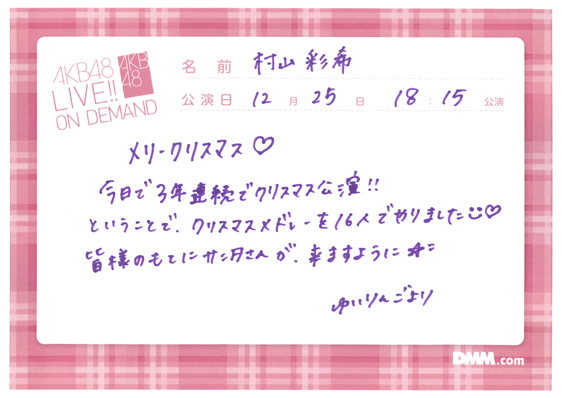 AKB48
LIVE!!
ON DEMAND
AKB
48
名 前 村山 彩希
公演日 12 月 25 日 18 : 15 公演
メリークリスマス♡
今日で3年連続でクリスマス公演!!
ということで、クリスマスメドレーを16人でやりました☺♡
皆様のもとにサンタさんが、来ますように☆ミ
ゆいりんごより
DMM.com